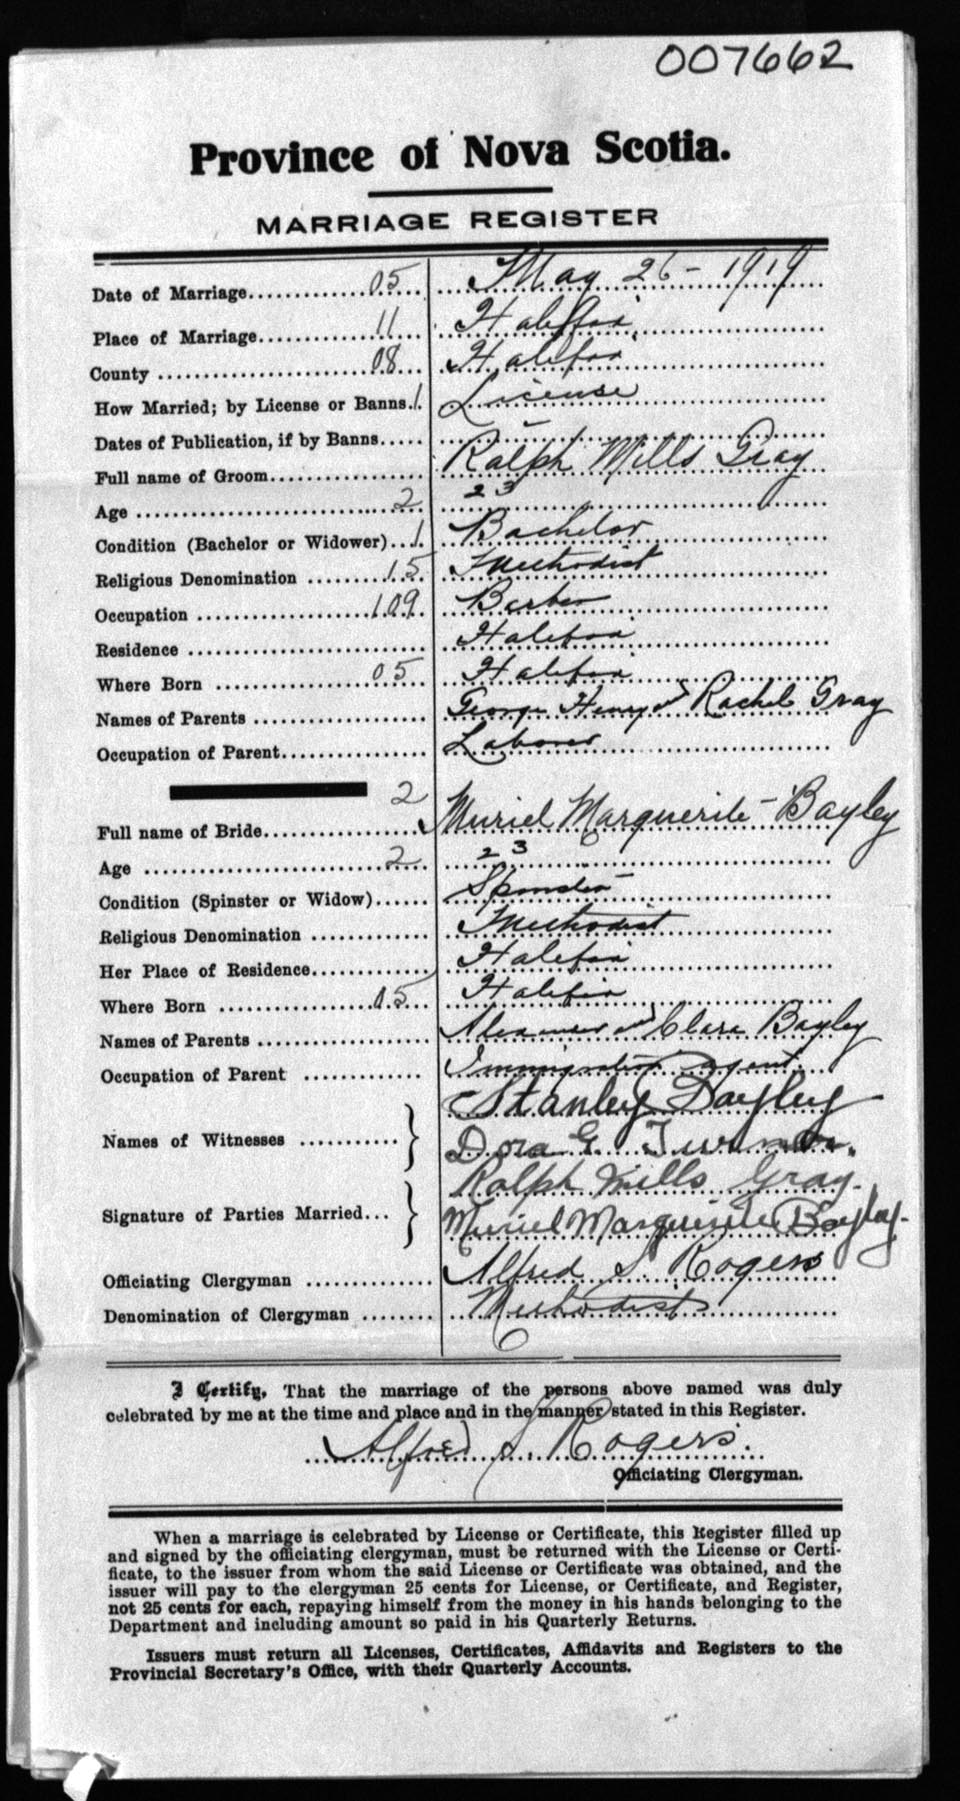 007662
Province of Nova Scotia.
MARRIAGE REGISTER
Date of Marriage 05 May 26 - 1919
Place of Marriage 11 Halifax
County 08 Halifax
How Married; by License or Banns 1 License
Dates of Publication, if by Banns -
Full name of Groom Ralph Mills Gray
Age 2 23
Condition (Bachelor or Widower) 1 Bachelor
Religious Denomination 15 Methodist
Occupation 109 Barber
Residence Halifax
Where Born 05 Halifax
Names of Parents George Henry and Rachel Gray
Occupation of Parent Laborer
2
Full name of Bride Muriel Marguerite Bayley
Age 2 23
Condition (Spinster or Widow) Spinster
Religious Denomination Methodist
Her Place of Residence Halifax
Where Born 05 Halifax
Names of Parents Alexander and Clara Bayley
Occupation of Parent Immigration Agent.
Names of Witnesses Stanley Bayley
Dora G. Turner.
Signature of Parties Married Ralph Mills Gray.
Muriel Marguerite Bayley.
Officiating Clergyman Alfred S. Rogers
Denomination of Clergyman Methodist
6
I Certify, That the marriage of the persons above named was duly
celebrated by me at the time and place and in the manner stated in this Register.
Alfred S. Rogers.
Officiating Clergyman.
When a marriage is celebrated by License or Certificate, this Register filled up
and signed by the officiating clergyman, must be returned with the License or Certi-
ficate, to the issuer from whom the said License or Certificate was obtained, and the
issuer will pay to the clergyman 25 cents for License, or Certificate, and Register,
not 25 cents for each, repaying himself from the money in his hands belonging to the
Department and including amount so paid in his Quarterly Returns.
Issuers must return all Licenses, Certificates, Affidavits and Registers to the
Provincial Secretary's Office, with their Quarterly Accounts.